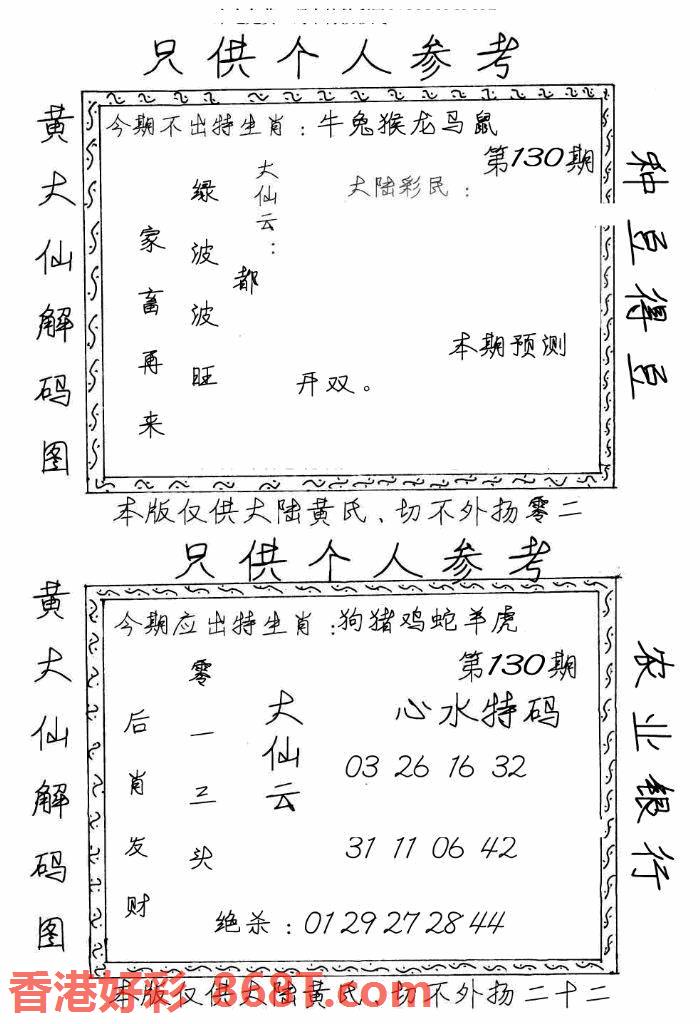 只供个人参考
黄大仙解码图
今期不出特生肖：牛兔猴龙马鼠
第130期
大仙云：
大陆彩民：
绿波波旺
家畜再来
都
本期预测
开双。
种豆得豆
本版仅供大陆黄氏、切不外扬零二
只供个人参考
黄大仙解码图
今期应出特生肖：狗猪鸡蛇羊虎
第130期
零一三头
后肖发财
大仙云
心水特码
03 26 16 32
31 11 06 42
绝杀：01 29 27 28 44
农业银行
本版仅供大陆黄氏、切不外扬二十二
香港好彩 868T.com